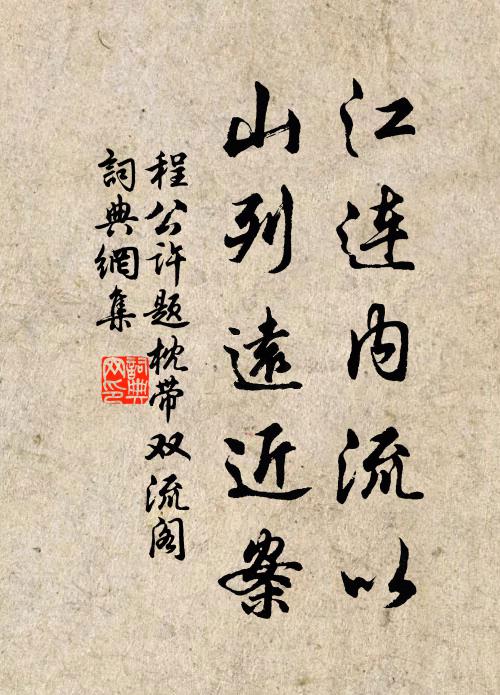 江連内流以
山列遠近案
程公许题枕带双流阁
詞典網集
詞典
网印